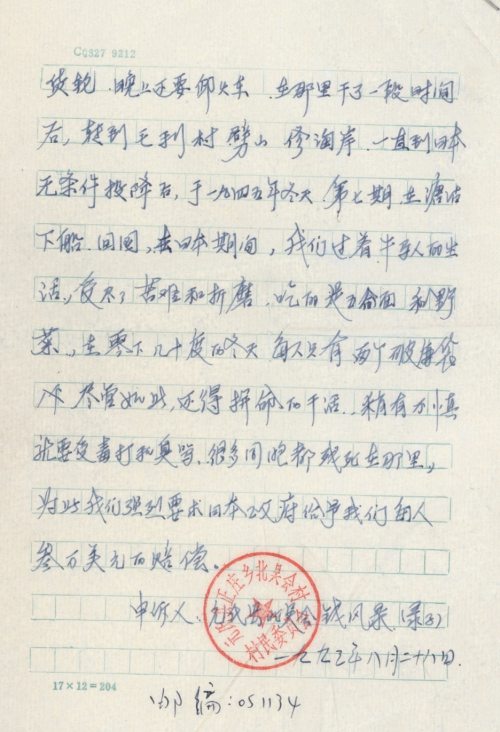 CG827 9212
货轮，晚上还要卸火车，在那里干了一段时间
后，转到毛利村劈山修海岸，一直到日本
无条件投降后，于一九四五年冬天，第七期在塘沽
下船，回国，去日本期间，我们过着牛马人的生
活，受尽了苦难和折磨，吃的是五合面和野
菜，在零下几十度的冬天每人只有两个破麻袋
尽管如此，还得拼命的干活，稍有不慎
就要受毒打和臭骂，很多同胞都残死在那里，
为此我们强烈要求日本政府给予我们每人
叁万美元的赔偿。
申诉人：元氏县北吴会 钱风
一九九三年八月二十六日
元氏县正庄乡北吴会村
村民委员会
17×12=204
邮编：051134